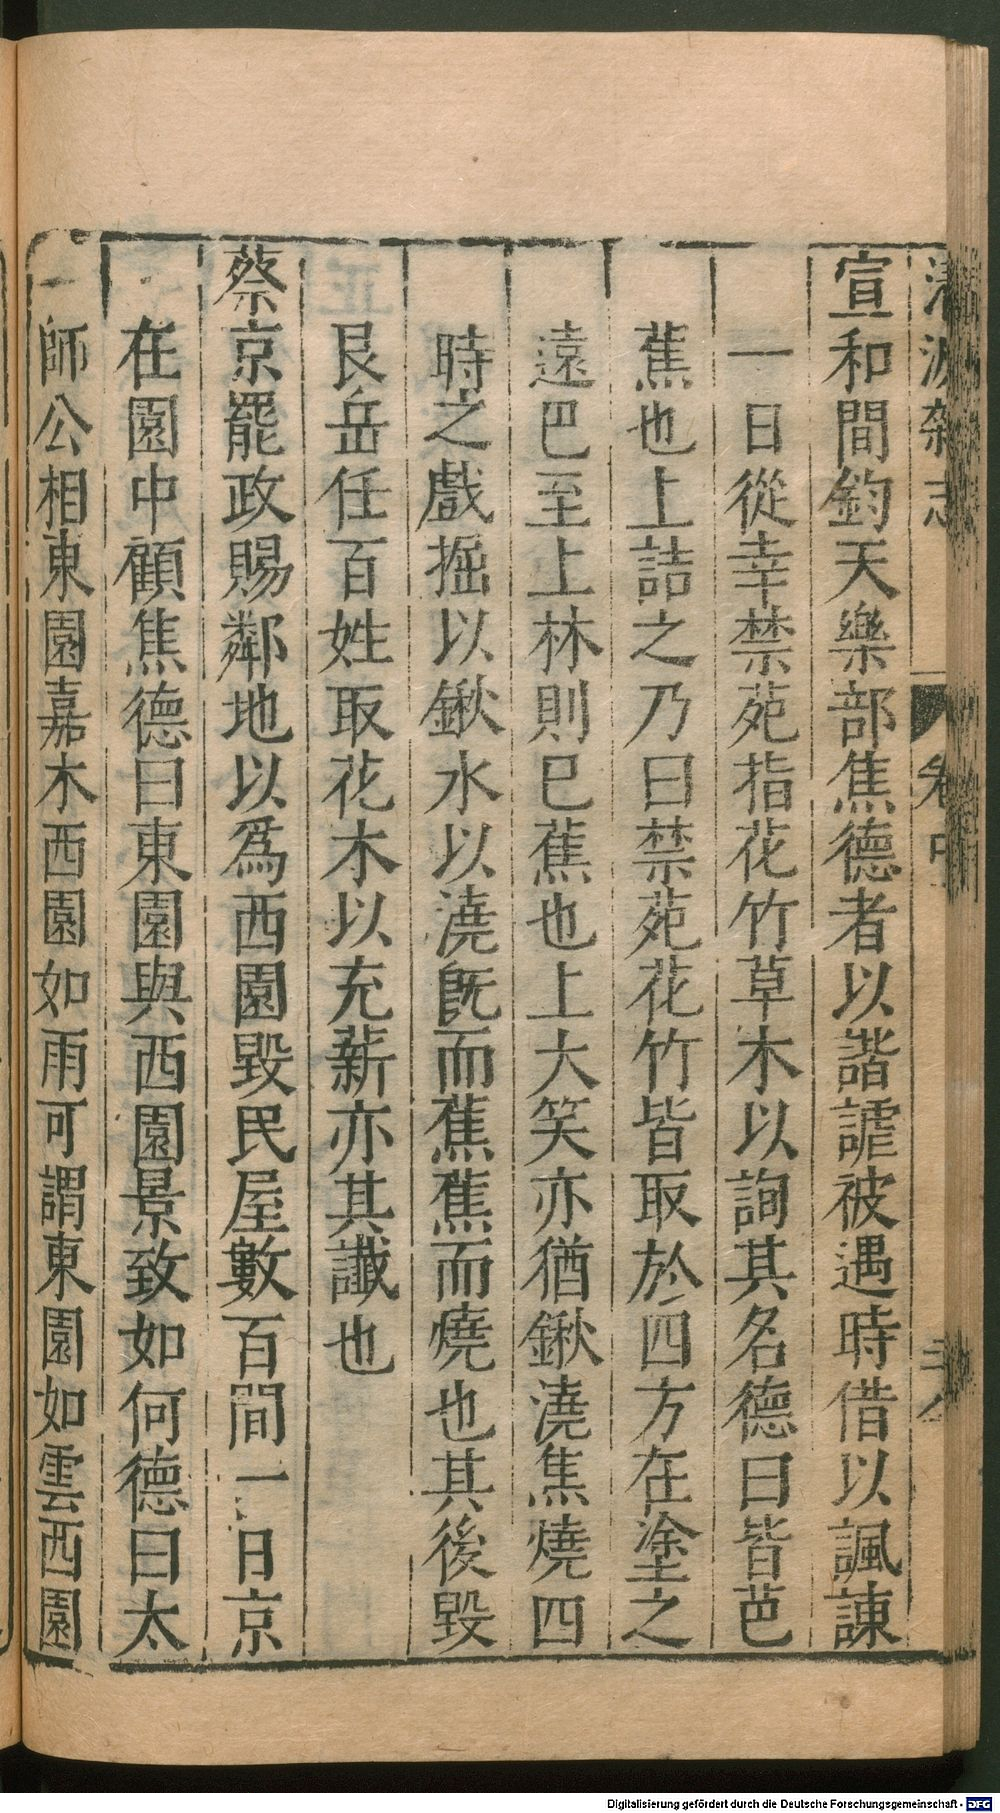 清波雜志 卷中 二八
宣和間鈞天樂部焦德者以諧謔被遇時借以諷諫
一日從幸禁苑指花竹草木以詢其名德曰皆芭
蕉也上詰之乃曰禁苑花竹皆取於四方在塗之
遠巴至上林則巴蕉也上大笑亦猶鍬澆焦燒四
時之戲掘以鍬水以澆既而蕉蕉而燒也其後毀
艮岳任百姓取花木以充薪亦其讖也
蔡京罷政賜鄰地以為西園毀民屋數百間一日京
在園中顧焦德曰東園與西園景致如何德曰太
師公相東園嘉木西園如雨可謂東園如雲西園
Digitalisierung gefördert durch die Deutsche Forschungsgemeinschaft - DFG